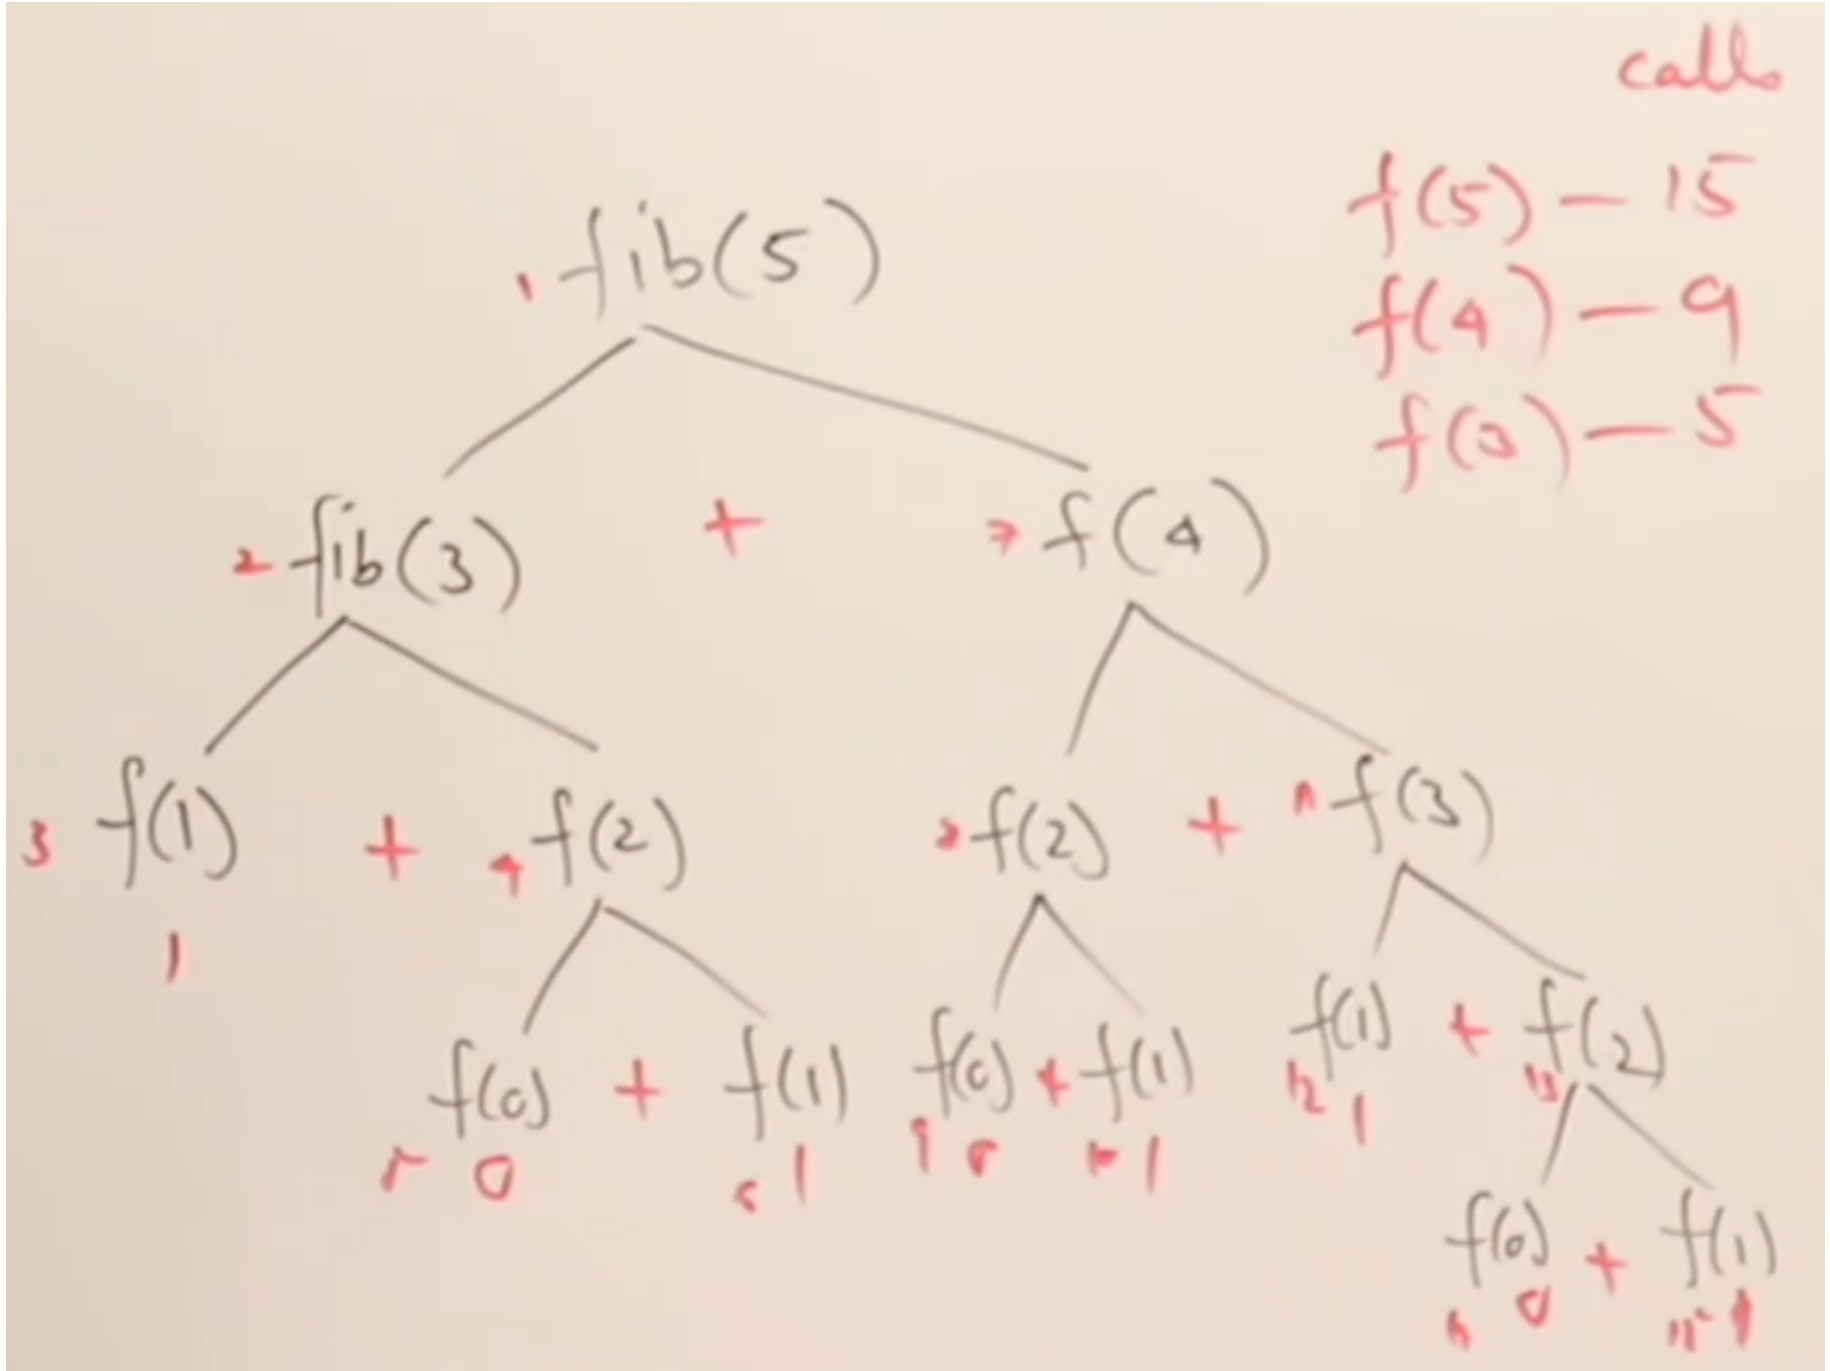 calls
f(5) - 15
f(4) - 9
f(3) - 5
1 fib(5)
2 fib(3) + 7 f(4)
3 f(1) + 4 f(2) f(2) + 11 f(3)
1
f(0) + f(1) f(0) + f(1) f(1) + f(2)
5 0 6 1 9 0 10 1 12 1 13
f(0) + f(1)
0 15 1